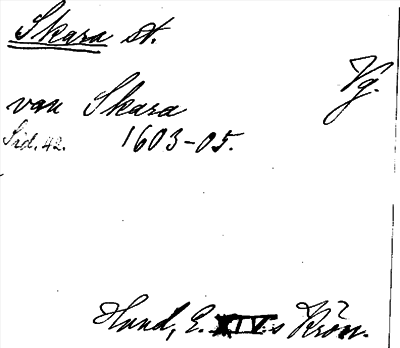 Skara st.
Vg.
van Skara
Sid. 42. 1603-05.
Hund, E. XIV:s Krön.